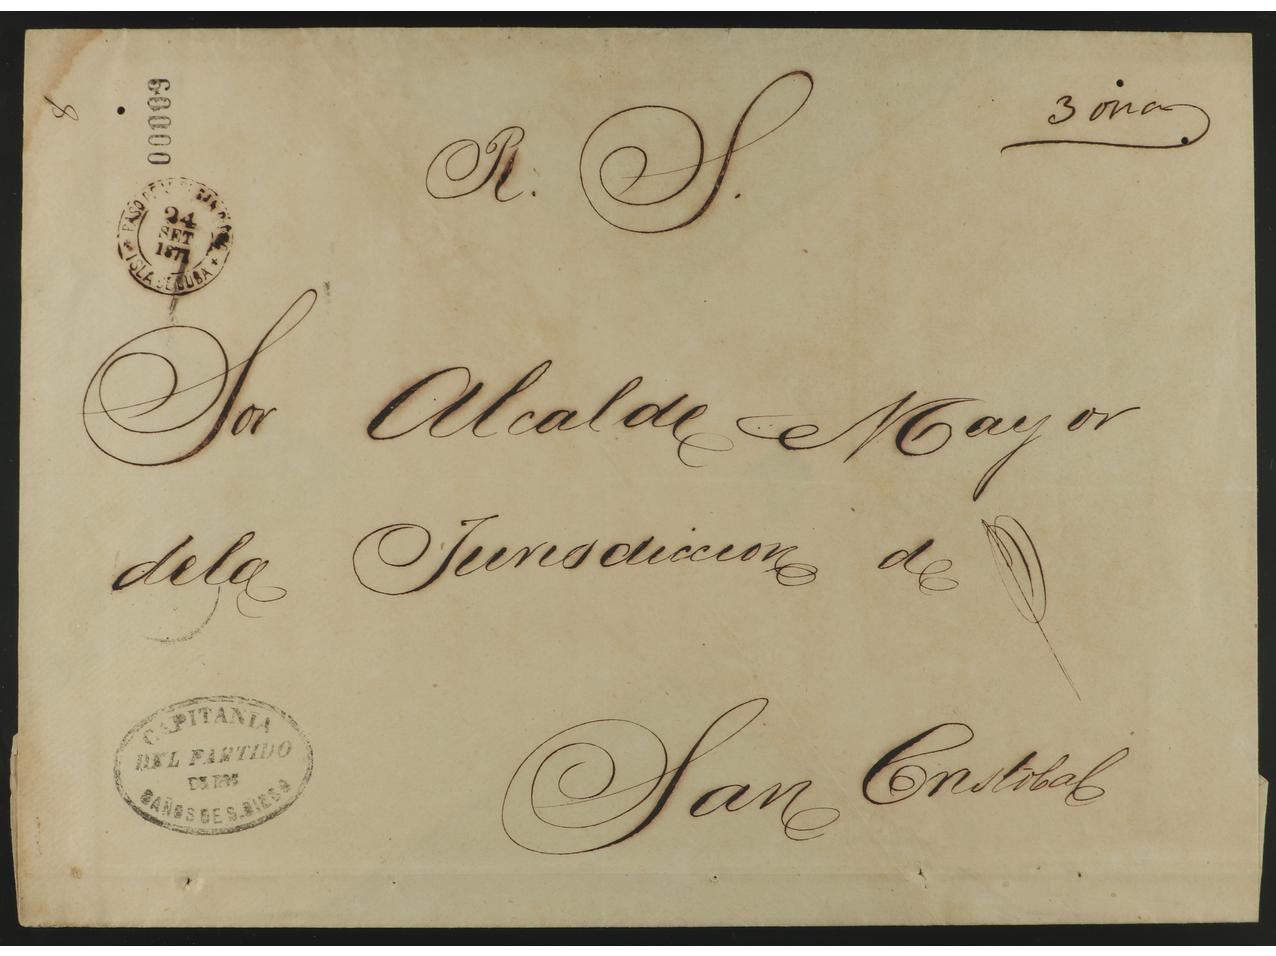 8
00009
R. S.
3 onza
24
SET
1871
ISLA DE CUBA
Sor Alcalde Mayor
dela Jurisdiccion de
San Cristobal
CAPITANIA
DEL PARTIDO
DE LOS
BAÑOS DE S. DIEGO